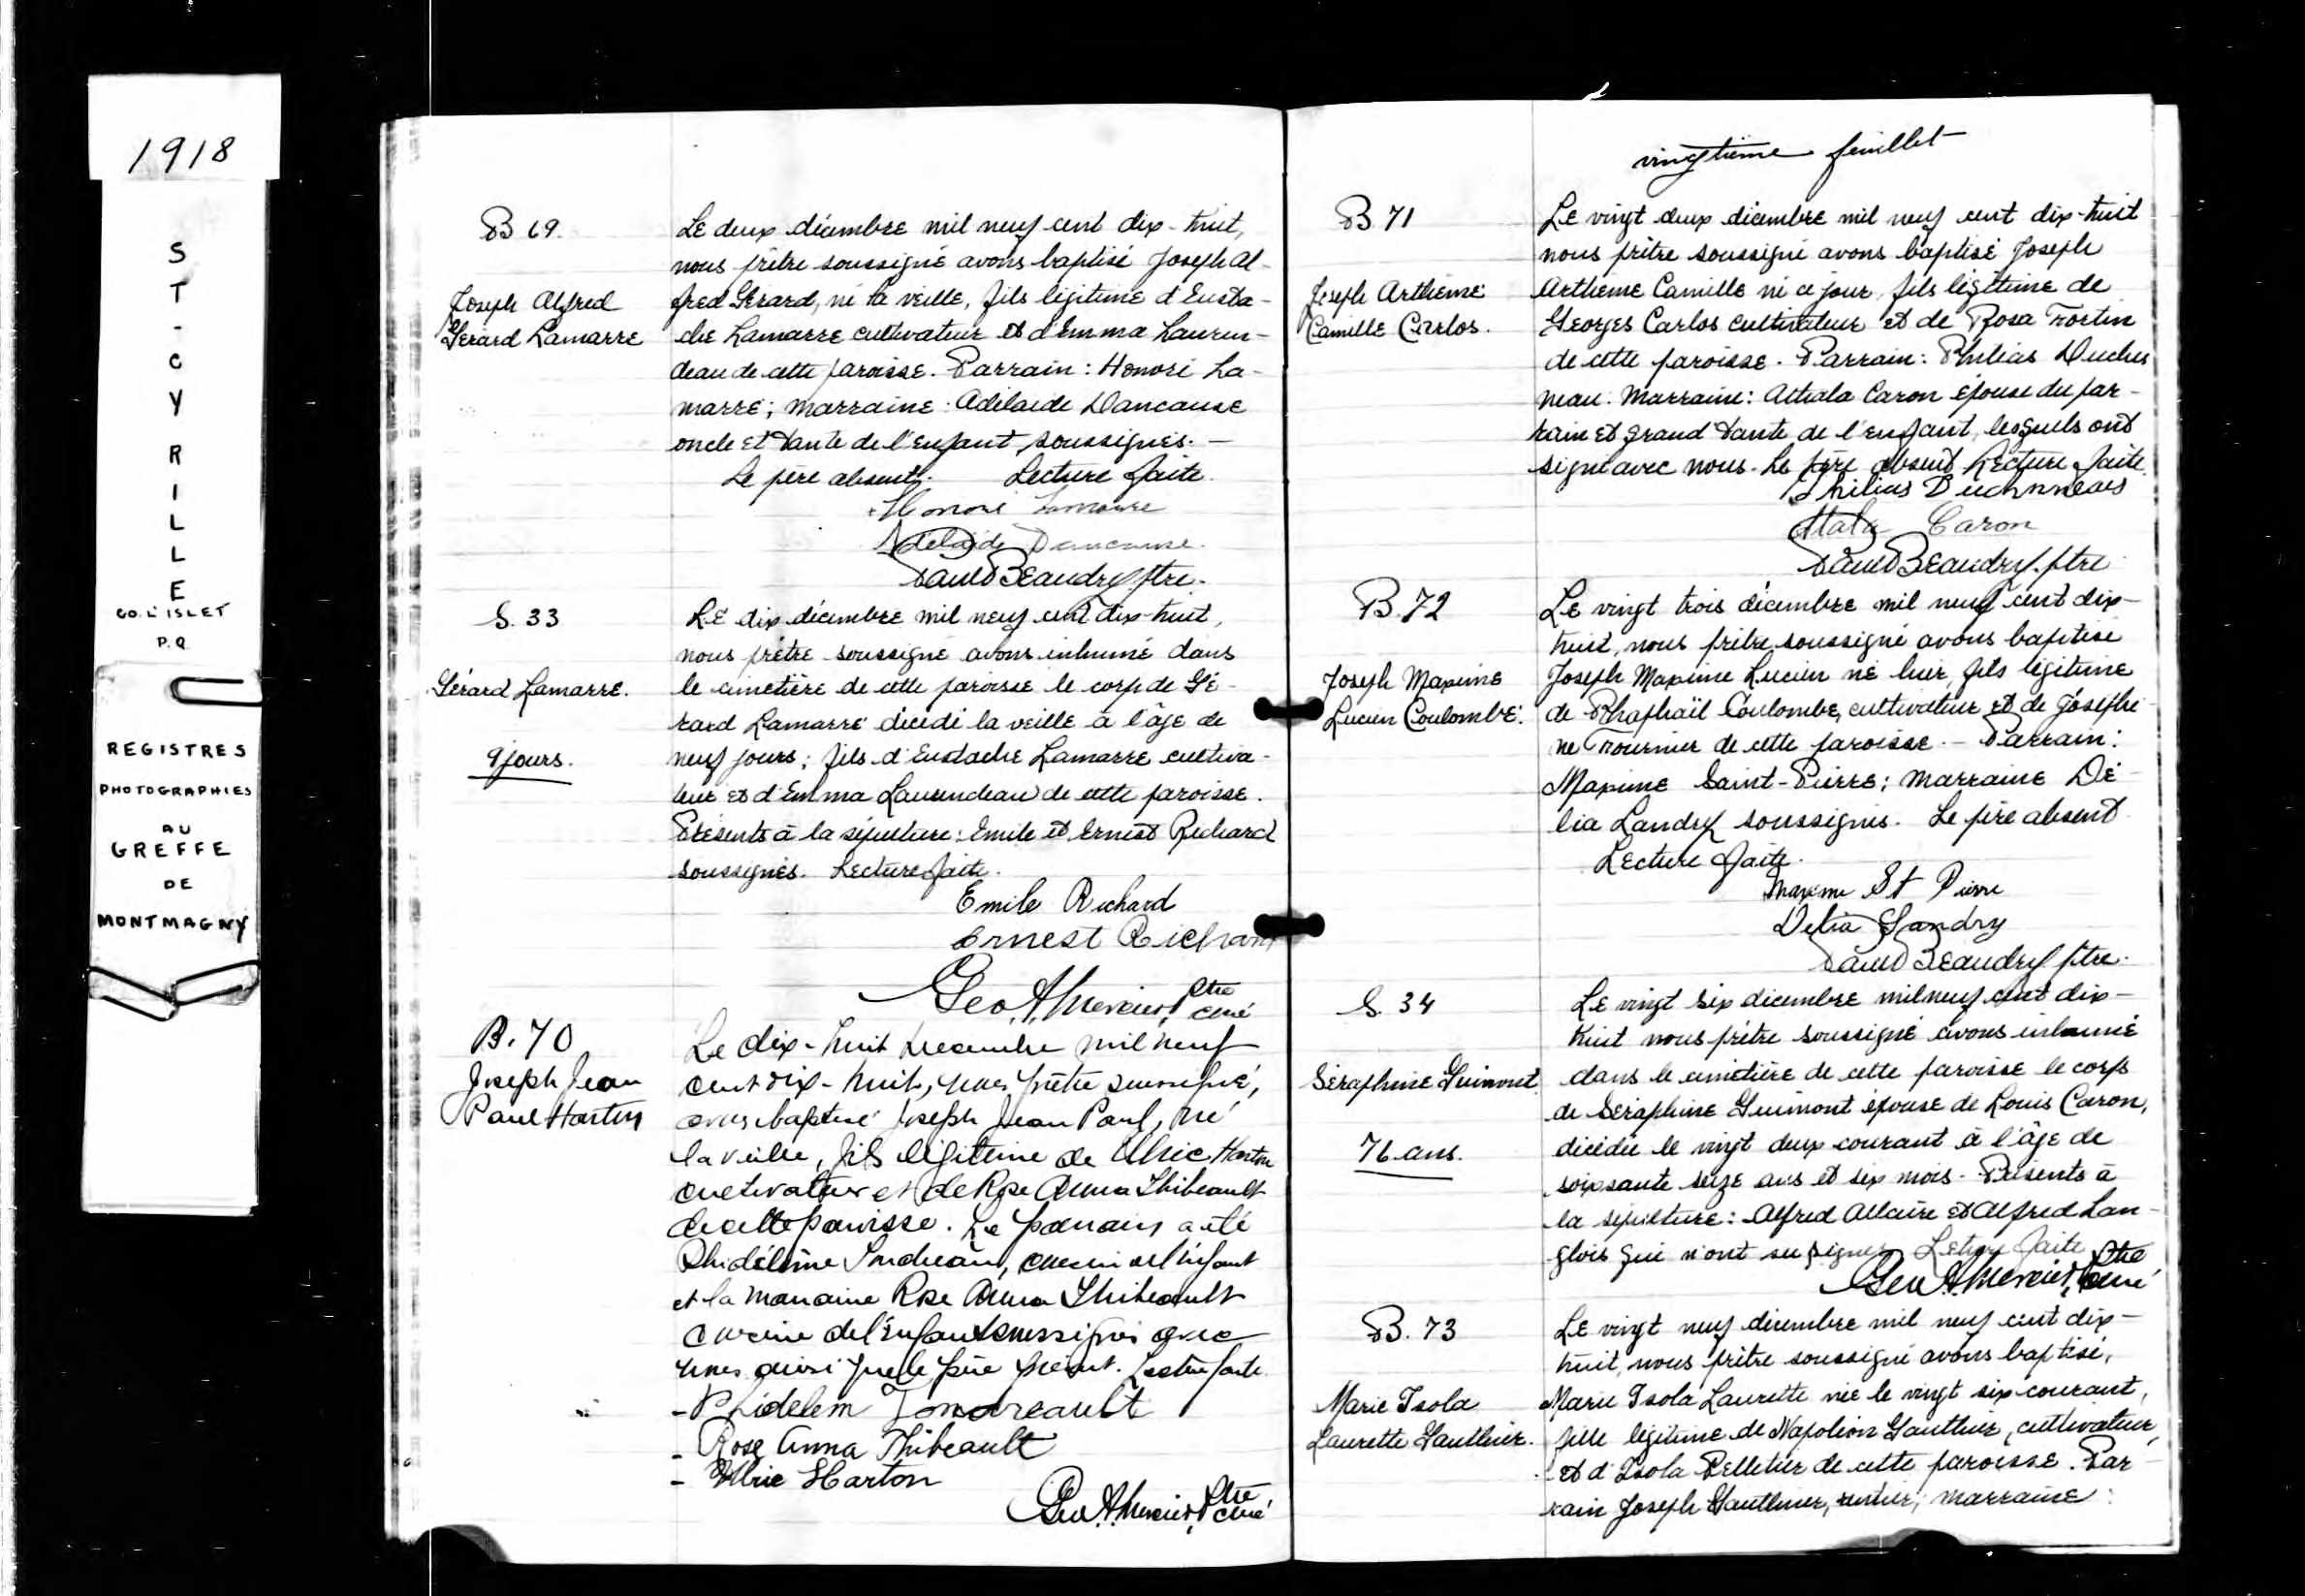 1918
ST-CYRILLE
CO. L'ISLET
P.Q.
REGISTRES
PHOTOGRAPHIES
AU
GREFFE
DE
MONTMAGNY
B 69.
Joseph Alfred
Gérard Lamarre
Le deux décembre mil neuf cent dix-huit,
nous prêtre soussigné avons baptisé Joseph Al-
fred Gérard, né la veille, fils légitime d'Eusta-
che Lamarre cultivateur et d'Emma Lauren-
deau de cette paroisse. Parrain: Honoré La-
marre; marraine: Adélaïde Dancause
oncle et tante de l'enfant, soussignés.-
Le père absent. Lecture faite.
Honoré Lamarre
Adelaide Dancause.
Paul Beaudry ptre.
S. 33
Gérard Lamarre.
9 jours.
Le dix décembre mil neuf cent dix-huit,
nous prêtre soussigné avons inhumé dans
le cimetière de cette paroisse le corps de Gé-
rard Lamarre décédé la veille à l'âge de
neuf jours; fils d'Eustache Lamarre cultiva-
teur et d'Emma Laurendeau de cette paroisse.
Présents à la sépulture: Emile et Ernest Richard
soussignés. Lecture faite.
Emile Richard
Ernest Richard
Geo. A. Mercier, Ptre
curé
B. 70
Joseph Jean
Paul Harton
Le dix-huit decembre mil neuf
cent dix-huit, nous prêtre soussigné,
avons baptisé Joseph Jean Paul, né
la veille, fils légitime de Ulric Harton
cultivateur et de Rose Anna Thibeault
de cette paroisse. Le parrain a été
Phidélème cousin de l'enfant
et la marraine Rose Anna Thibeault
cousine de l'enfant soussignés avec
nous ainsi que le père présent. Lecture faite.
- Phidelem Tondreault
- Rose Anna Thibeault
- Ulric Harton
Geo. A. Mercier, Ptre
curé
vingtième feuillet
B. 71
Joseph Arthème
Camille Carlos.
Le vingt deux décembre mil neuf cent dix-huit
nous prêtre soussigné avons baptisé Joseph
Arthème Camille né ce jour, fils légitime de
Georges Carlos cultivateur et de Rosa Fortin
de cette paroisse. Parrain: Philias Duches
neau. Marraine: Attala Caron épouse du par-
rain et grand tante de l'enfant, lesquels ont
signé avec nous. Le père absent Lecture faite.
Philias
Atala Caron
Paul Beaudry. ptre
B. 72
Joseph Maxime
Lucien Coulombe.
Le vingt trois décembre mil neuf cent dix-
huit, nous prêtre soussigné avons baptisé
Joseph Maxime Lucien né hier, fils légitime
de Rhaphaïl Coulombe, cultivateur et de Joséphi-
ne Fournier de cette paroisse. - Parrain:
Maxime Saint-Pierre; marraine Dé-
lia Landry soussignés. Le père absent.
Lecture faite.
Maxime St Pierre
Delia Landry
Paul Beaudry ptre.
S. 34
Séraphine Guimont
76 ans.
Le vingt six décembre mil neuf cent dix-
huit nous prêtre soussigné avons inhumé
dans le cimetière de cette paroisse le corps
de Séraphine Guimont épouse de Louis Caron,
décédée le vingt deux courant à l'âge de
soixsante seize ans et six mois. Présents à
la sépulture: Alfred Allaire et Alfred Lan-
glois qui n'ont su signer. faite
Geo. A. Mercier, Ptre
curé
B. 73
Marie Isola
Laurette Gauthier.
Le vingt neuf décembre mil neuf cent dix-
huit, nous prêtre soussigné avons baptisé,
Marie Isola Laurette née le vingt six courant,
fille légitime de Napoléon Gauthier, cultivateur,
et d'Isola Pelletier de cette paroisse. Par-
rain Joseph Gauthier, rentier; marraine: